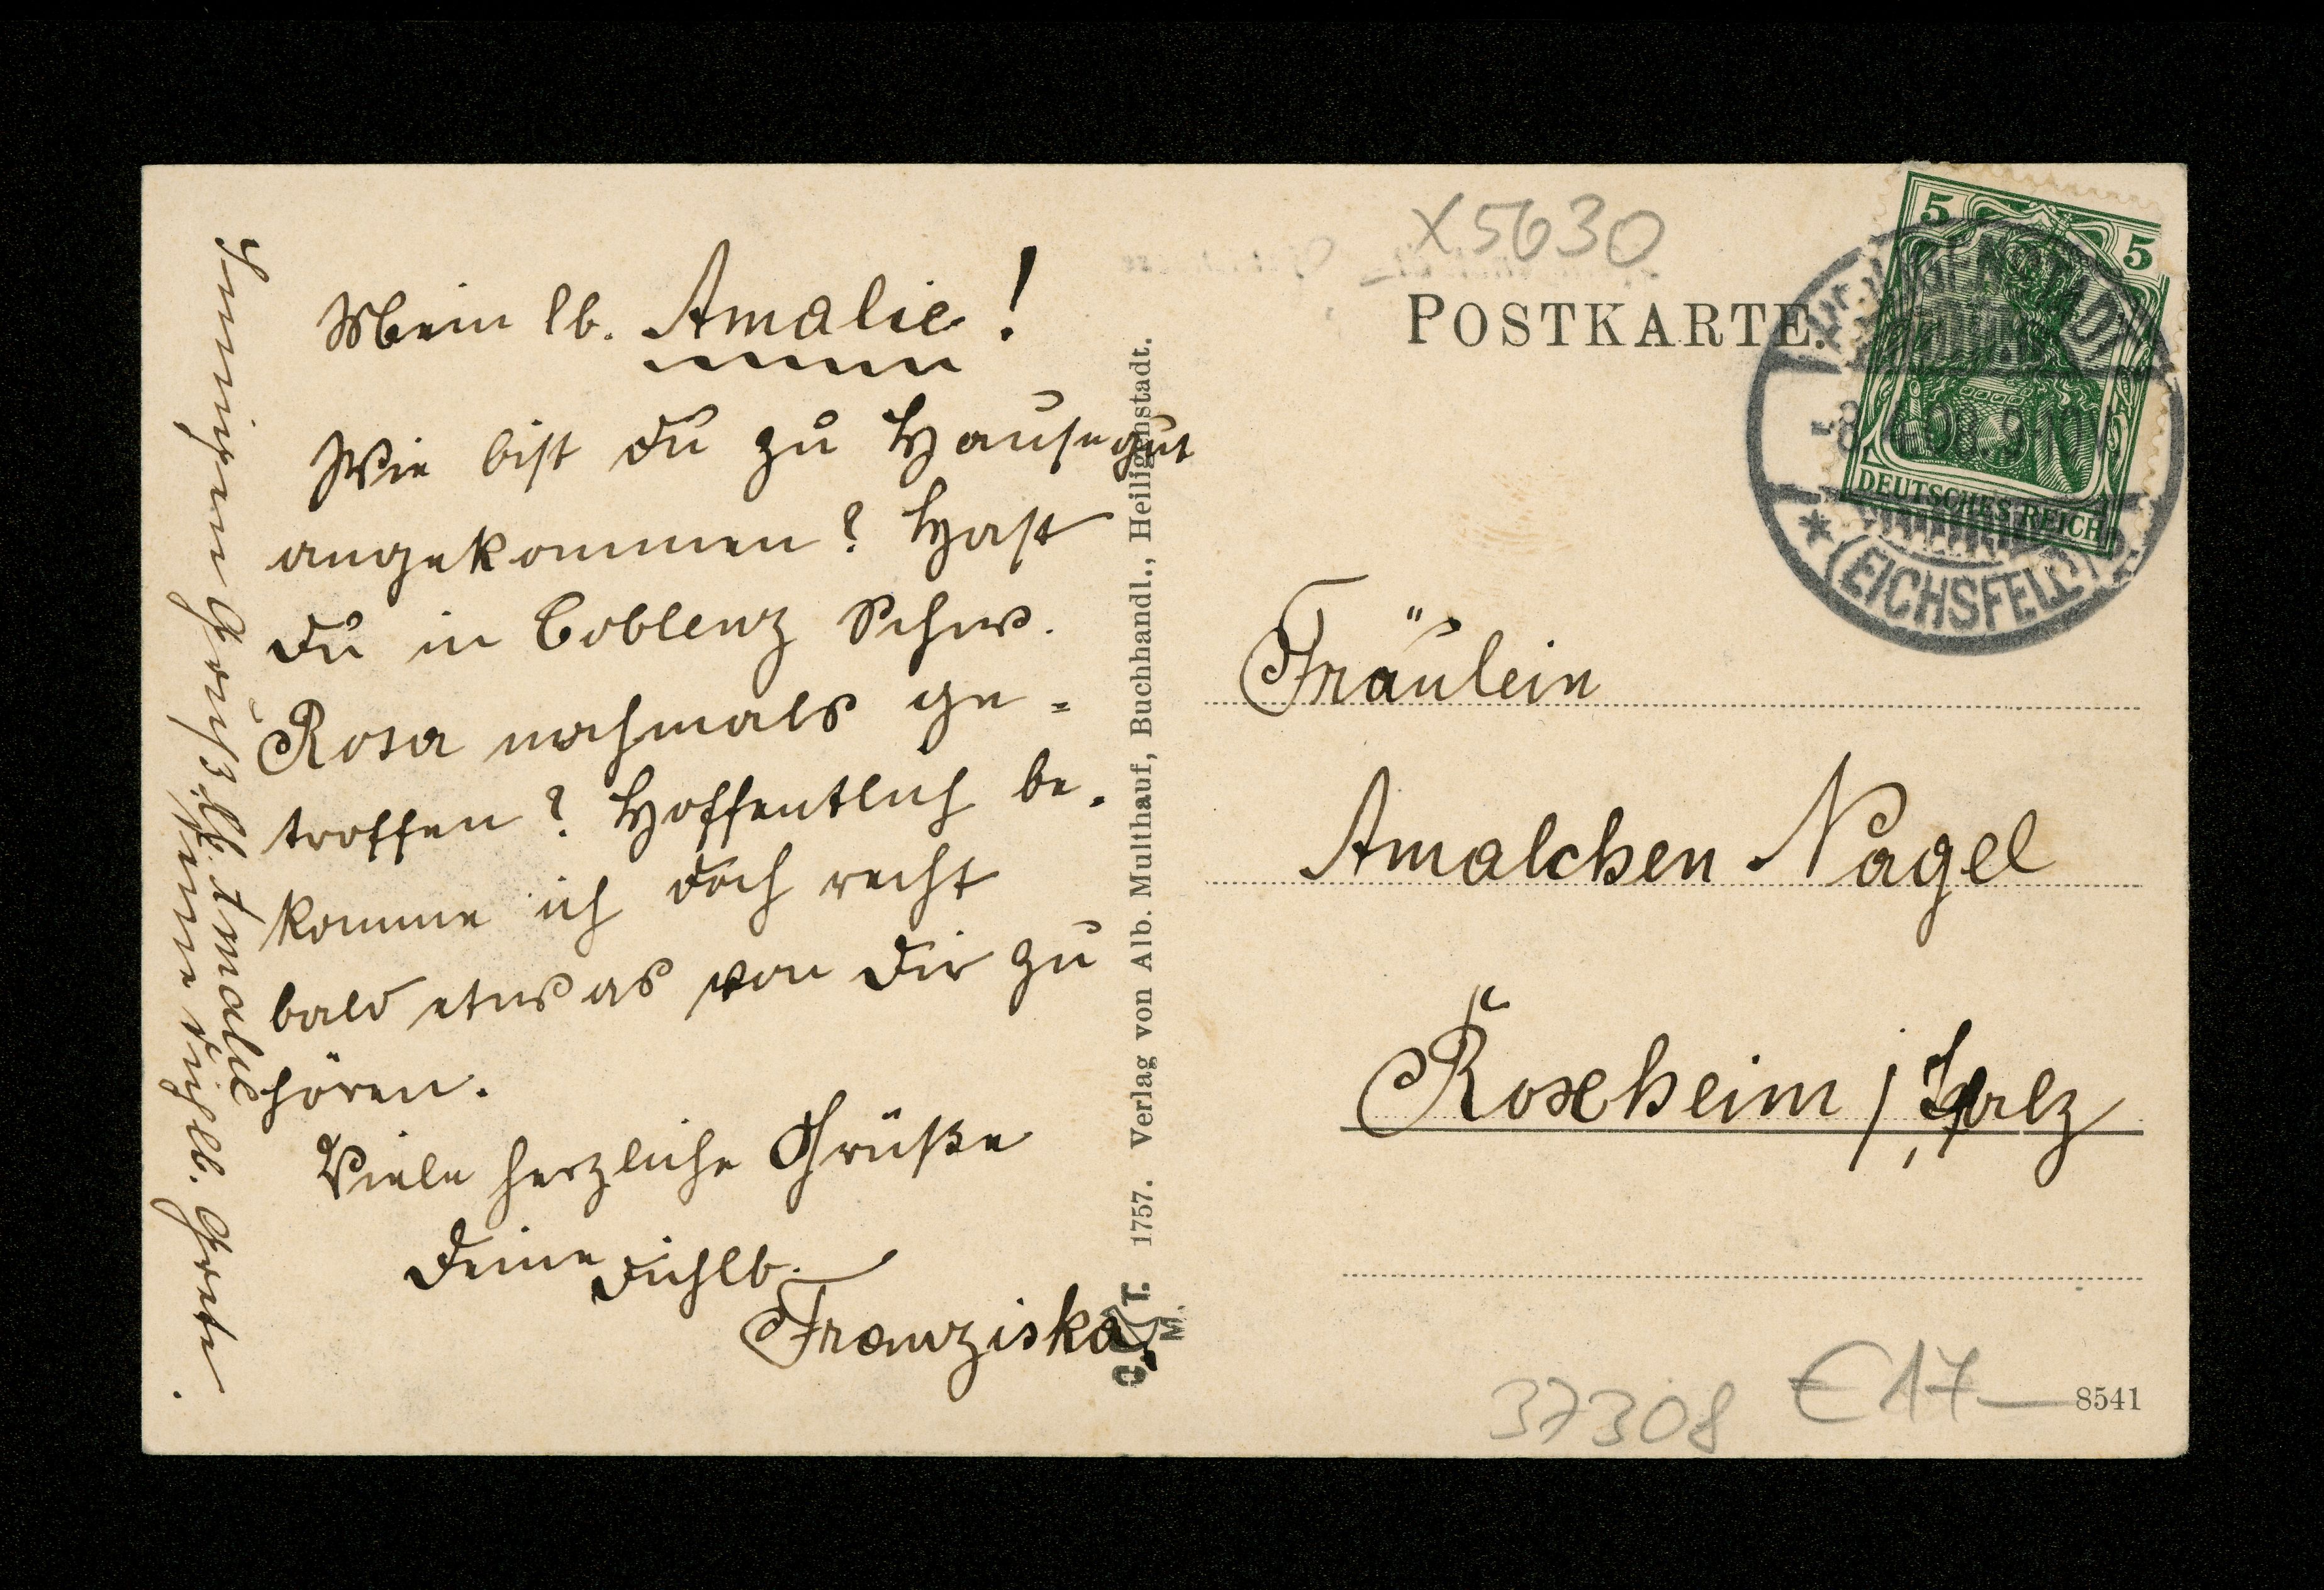 Mein lb. Amalie!
Wie bist Du zu Hause gut
angekommen? Hast
Du in Coblenz Schw.
Rosa nochmals ge=
troffen? Hoffentlich be-
komme ich doch recht
bald etwas von Dir zu
hören.
Viele herzliche Grüße
Deine Dichlb.
Franziska.
Innigen Gruß, lb. Amalie
Deine Dichlb. Grete.
1757. Verlag von Alb. Multhauf, Buchhandl., Heiligenstadt.
C. T.
M.
X5630
POSTKARTE.
5
5
DEUTSCHES REICH
(EICHSFELD)
Fräulein
Amalchen Nagel
Roxheim / Pfalz
37308 €17—
8541